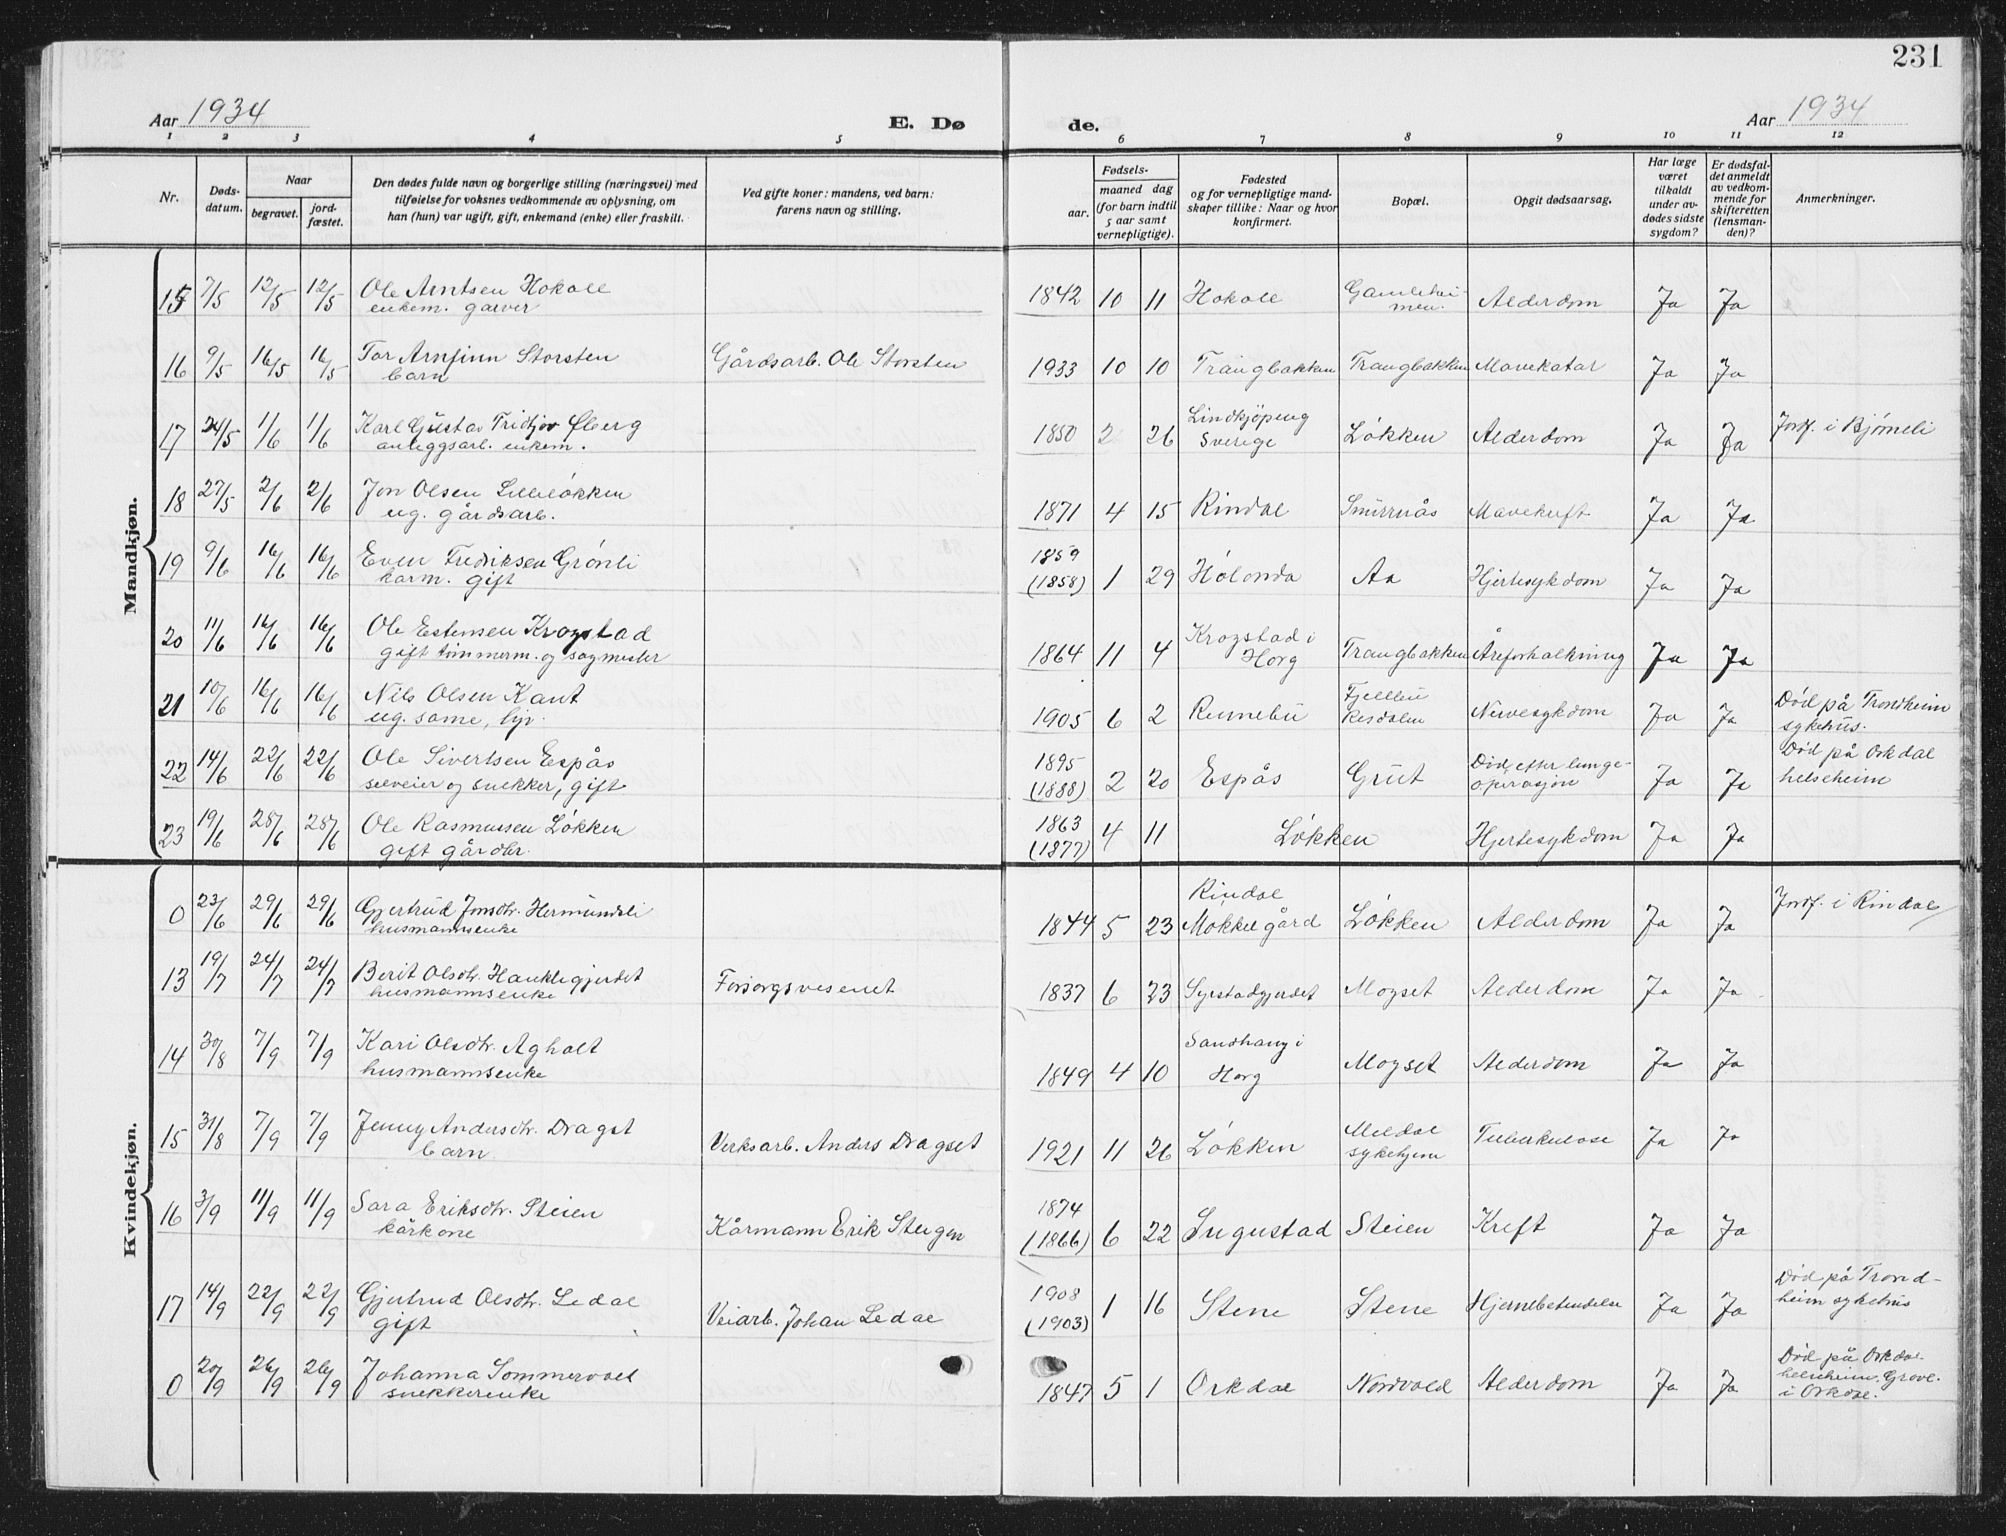 231
Aar 1934
E. Dø
de.
Aar 1934
1 2 3 4 5 6 7 8 9 10 11 12
Nr.
Døds-
datum.
Naar
begravet.
jord-
fæstet.
Den dødes fulde navn og borgerlige stilling (næringsvei) med
tilføielse for voksnes vedkommende av oplysning, om
han (hun) var ugift, gift, enkemand (enke) eller fraskilt.
Ved gifte koner: mandens, ved barn:
farens navn og stilling.
Fødsels-
aar.
maaned dag
(for barn indtil
5 aar samt
vernepligtige).
Fødested
og for vernepligtige mand-
skaper tillike: Naar og hvor
konfirmert.
Bopæl.
Opgit dødsaarsag.
Har læge
været
tilkaldt
under av-
dødes sidste
sygdom?
Er dødsfal-
det anmeldt
av vedkom-
mende for
skifteretten
(lensman-
den)?
Anmerkninger.
Mandkjøn.
15 7/5 12/5 12/5 Ole Arntsen Hokoll 1842 10 11 Hokoll Gamlehei- Alderdom Ja Ja
enkem. garver men.
16 9/5 16/5 16/5 Tor Arnfinn Storsten Gårdsarb. Ole Storsten 1933 10 10 Trangbakken Trangbakken Mavekatar Ja Ja
barn
17 24/5 1/6 1/6 Karl Gustav Fridtjov Øberg 1850 2 26 Lindkjöping Løkken Alderdom Ja Ja Jordf. i Bjørnli
anleggsarb. enkem. Sverige
18 27/5 2/6 2/6 Jon Olsen Lilleløkken 1871 4 15 Rindal Smirrnås Mavekreft Ja Ja
ug. gårdsarb.
19 9/6 16/6 16/6 Even Fredriksen Grønli 1859 1 29 Hølonda Aa Hjertesykdom Ja Ja
karm. gift (1858)
20 11/6 16/6 16/6 Ole Estensen Krogstad 1864 11 4 Krogstad i Trangbakken Åreforkalkning Ja Ja
gift tømmerm. og sagmester Horg
21 10/6 16/6 16/6 Nils Olsen Kant 1905 6 2 Rennebu Fjellbu Nervesykdom Ja Ja Død på Trondheim
ug. same, Resdalen sykehus.
22 14/6 22/6 22/6 Ole Sivertsen Espås 1895 2 20 Espås Grut Død efter lunge- Ja Ja Død på Orkdal
selveier og snekker, gift (1888) operasjon helseheim
23 19/6 28/6 28/6 Ole Rasmussen Løkken 1863 4 11 Løkken Hjertesykdom Ja Ja
gift gårdbr. (1877)
Kvindekjøn.
0 23/6 29/6 29/6 Gjertrud Jonsdtr. Hermundsli 1844 5 23 Rindal Løkken Alderdom Ja Ja Jordf. i Rindal
husmannsenke Mokkelgård
13 19/7 24/7 24/7 Berit Olsdtr. Haukligjerdet Forsorgsvesenet 1837 6 23 Syrstadgjerdet Mogset Alderdom Ja Ja
husmannsenke
14 30/8 7/9 7/9 Kari Olsdtr. Agholt 1849 4 10 Sandhaug i Mogset Alderdom Ja Ja
husmannsenke Horg
15 31/8 7/9 7/9 Jenny Andersdtr. Dragset Verksarb. Anders Dragset 1921 11 26 Løkken Meldal Tuberkulose Ja Ja
barn sykehjem
16 3/9 11/9 11/9 Sara Eriksdtr. Steien Kårmann Erik Steigen 1874 6 22 Sugustad Steien Kreft Ja Ja
kårkone (1866)
17 14/9 22/9 22/9 Gjertrud Olsdtr. Ledal Veiarb. Johan Ledal 1908 1 16 Stene Stene Hjernebetendelse Ja Ja Død på Trond-
gift (1903) heim sykehus
0 20/9 26/9 26/9 Johanna Sommervoll 1847 5 1 Orkdal Nordvold Alderdom Ja Ja Død på Orkdal
snekkerenke helseheim. Gravl.
i Orkdal.